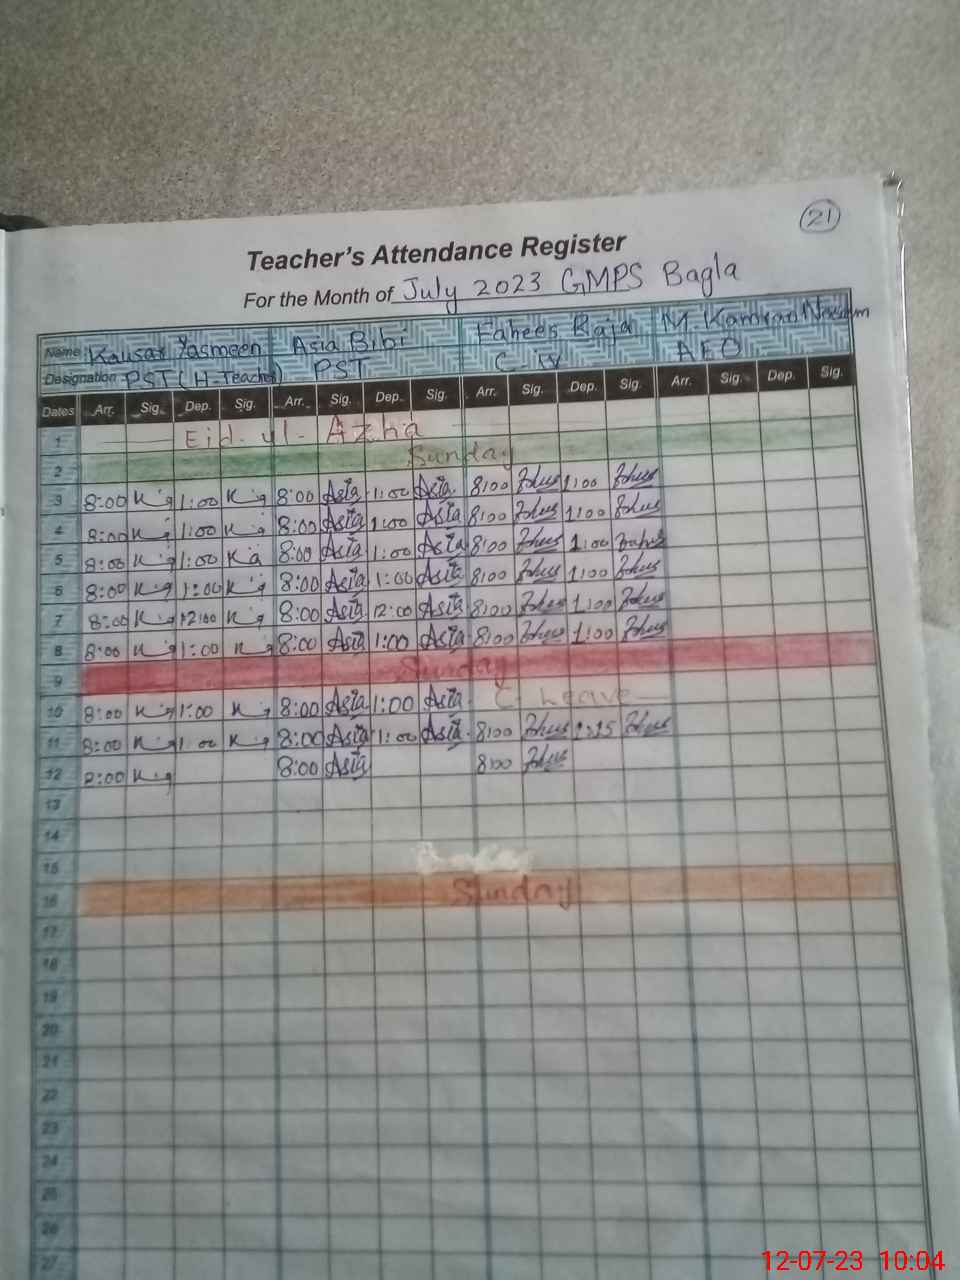 21
Teacher's Attendance Register
For the Month of July 2023 GMPS Bagla
Name Kausar Yasmeen Asia Bibi Fahees Raja M. Kamran
Designation PST (H-Teacher) PST C. IV AEO
Dates Arr. Sig. Dep. Sig. Arr. Sig. Dep. Sig. Arr. Sig. Dep. Sig. Arr. Sig. Dep. Sig.
1 Eid-ul-Azha
2 Sunday
3 8:00 1:00 8:00 Asia 1:00 Asia 8:00 1:00
4 8:00 1:00 8:00 Asia 1:00 Asia 8:00 1:00
5 8:00 1:00 8:00 Asia 1:00 Asia 8:00 1:00
6 8:00 1:00 8:00 Asia 1:00 Asia 8:00 1:00
7 8:00 12:00 8:00 Asia 12:00 Asia 8:00 1:00
8 8:00 1:00 8:00 Asia 1:00 Asia 8:00 1:00
9 Sunday
10 8:00 1:00 8:00 Asia 1:00 Asia C. Leave
11 8:00 1:00 8:00 Asia 1:00 Asia 8:00
12 8:00 8:00 Asia 8:00
13
14
15
16 Sunday
17
18
19
20
21
22
23
24
25
26
27
12-07-23 10:04